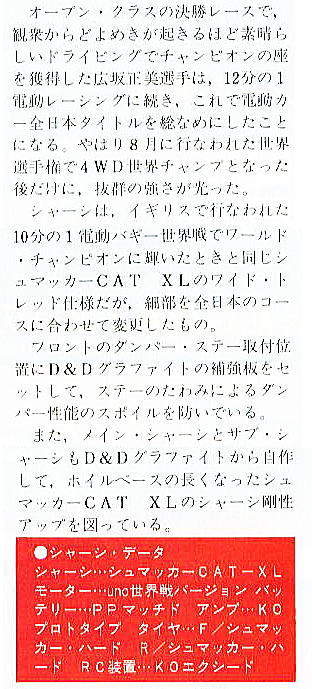 オープン・クラスの決勝レースで，
観衆からどよめきが起きるほど素晴ら
しいドライビングでチャンピオンの座
を獲得した広坂正美選手は，12分の1
電動レーシングに続き，これで電動カ
ー全日本タイトルを総なめにしたこと
になる。やはり8月に行なわれた世界
選手権で4WD世界チャンプとなった
後だけに，抜群の強さが光った。
シャーシは，イギリスで行なわれた
10分の1電動バギー世界戦でワールド
・チャンピオンに輝いたときと同じシ
ュマッカーCAT　XLのワイド・ト
レッド仕様だが，細部を全日本のコー
スに合わせて変更したもの。
フロントのダンパー・ステー取付位
置にD&Dグラファイトの補強板をセ
ットして，ステーのたわみによるダン
パー性能のスポイルを防いでいる。
また，メイン・シャーシとサブ・シ
ャーシもD&Dグラファイトから自作
して，ホイルベースの長くなったシュ
マッカーCAT　XLのシャーシ剛性
アップを図っている。
●シャーシ・データ
シャーシ…シュマッカーCAT－XL
モーター…uno世界戦バージョン　バッ
テリー…PPマッチド　アンプ…KO
プロトタイプ　タイヤ…F／シュマッ
カー・ハード　R／シュマッカー・ハ
ード　RC装置…KOエクシード